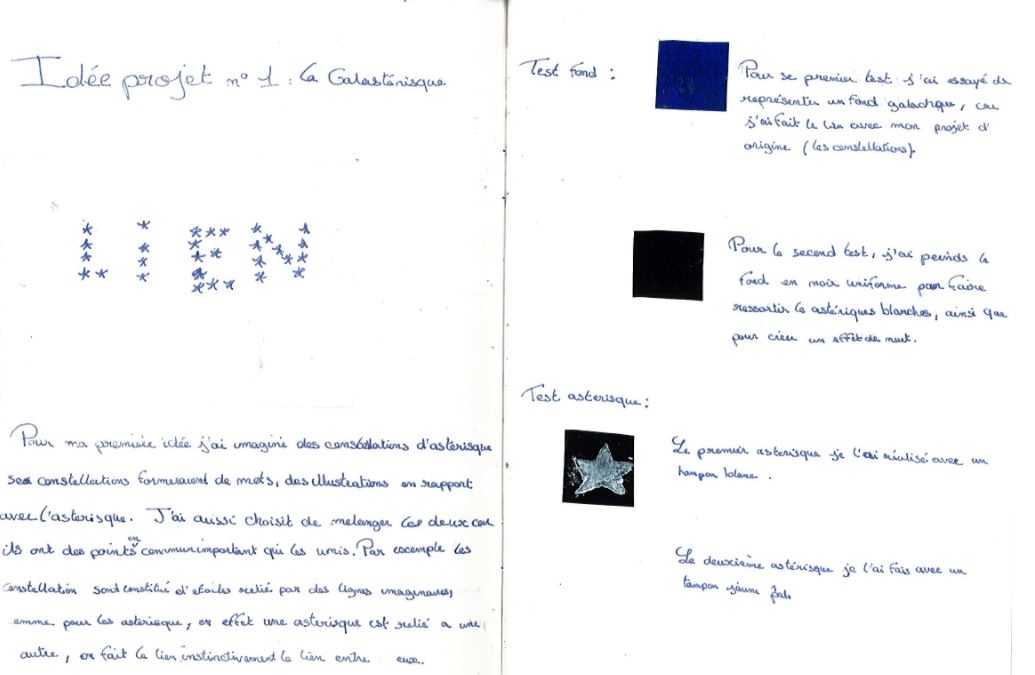 Idée projet n° 1 : La Galastérisque
LIEN
Pour ma première idée j'ai imaginé des constellations d'astérisque
ses constellations formeraient de mots, des illustrations en rapport
avec l'asterisque. J'ai aussi choisit de melanger les deux car
ils ont des points en commun important qui les unis. Par exemple les
constellation sont constitué d'etoiles relié par des lignes imaginaires,
omme pour les asterisque, en effet une asterisque est relié a une
autre, on fait le lien instinctivement le lien entre eux.
Test fond :
Pour se premier test j'ai essayé de
représenter un fond galactique, car
j'ai fait le lien avec mon projet d'
origine (les constellations).
Pour le second test, j'ai peinds le
fond en noir uniforme pour faire
ressortir le astériques blanches, ainsi que
pour créer un effet de nuit.
Test asterisque :
Le premier asterisque je l'ai réalisé avec un
tampon blanc .
Le deuxième astérisque je l'ai fais avec un
tampon jaune